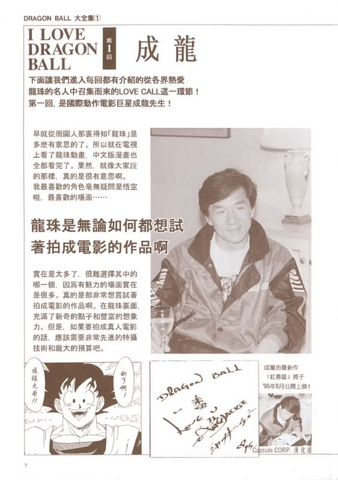 DRAGON BALL 大全集①
I LOVE
DRAGON
BALL
第1回
成龍
下面讓我們進入每回都有介紹的從各界熱愛
龍珠的名人中召集而來的LOVE CALL這一環節！
第一回，是國際動作電影巨星成龍先生！
早就從周圍人那裏得知「龍珠」是
多麽有意思的了。所以就在電視
上看了龍珠動畫，中文版漫畫也
全部看完了。果然，就像大家說
的那樣，真的是很有意思啊。
我最喜歡的角色毫無疑問是悟空
啦，最喜歡的場面……
龍珠是無論如何都想試
著拍成電影的作品啊
實在是太多了，很難選擇其中的
哪一個，因爲有魅力的場面實在
是很多。真的是都非常想嘗試著
拍成電影的作品啊。在龍珠裏面，
充滿了新奇的點子和豐富的想象
力。但是，如果要拍成真人電影
的話，應該需要非常先進的特攝
技術和龐大的預算吧。
成龍大哥!!
DRAGON BALL
Love
成龍的最新作
「紅番區」將于
'95年8月公開上映！
Capsule CORP.
7